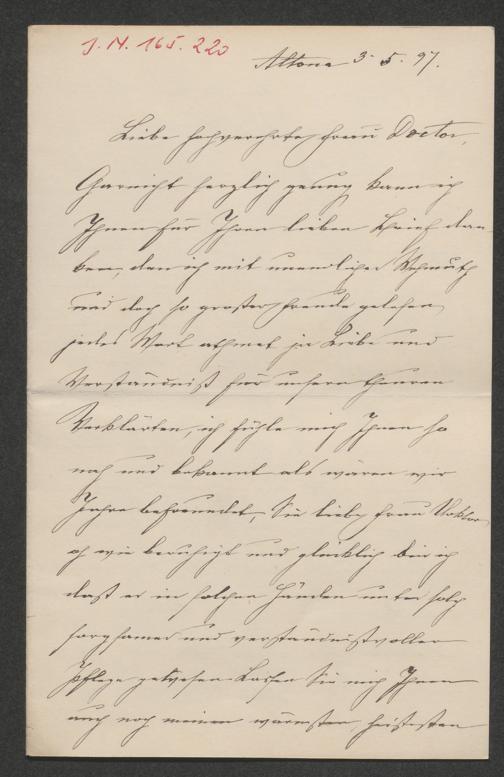 J. N. 165.220
Altona 3. 5. 97.
Liebe hochverehrte Frau Doctor,
Garnicht herzlich genug kann ich
Ihnen für Ihren lieben Brief dan-
ken, den ich mit unendlicher Wehmuth
und doch so großer Freude gelesen,
jedes Wort athmet ja Liebe und
Verständniß für unsern theuren
Verklärten, ich fühle mich Ihnen so
nah und bekannt als wären wir
Jahre befreundet, Sie liebe Frau Doktor
ach wie beruhigt und glücklich bin ich
daß er in solchen Händen unter solch
sorgsamer und verständnißvoller
Pflege gewesen. Lassen Sie mich Ihnen
auch noch meinen wärmsten, heißesten